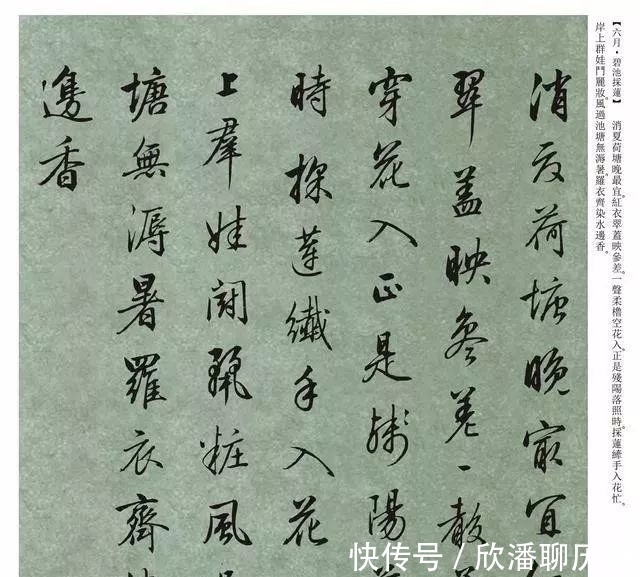 【六月·碧池採蓮】 消夏荷塘晚最宜。紅衣翠蓋映參差。一聲柔櫓空花入。正是殘陽落照時。採蓮縴手入花忙。
岸上群娃鬥麗妝。風過池塘無海暑。羅衣齊染水邊香。
消夏荷塘晚最宜
翠蓋映參差一聲
穿花入正是殘陽
時採蓮纖手入花
上羣娃鬪麗粧風
塘無溽暑羅衣齊
邊香
快传号/欣潘聊历